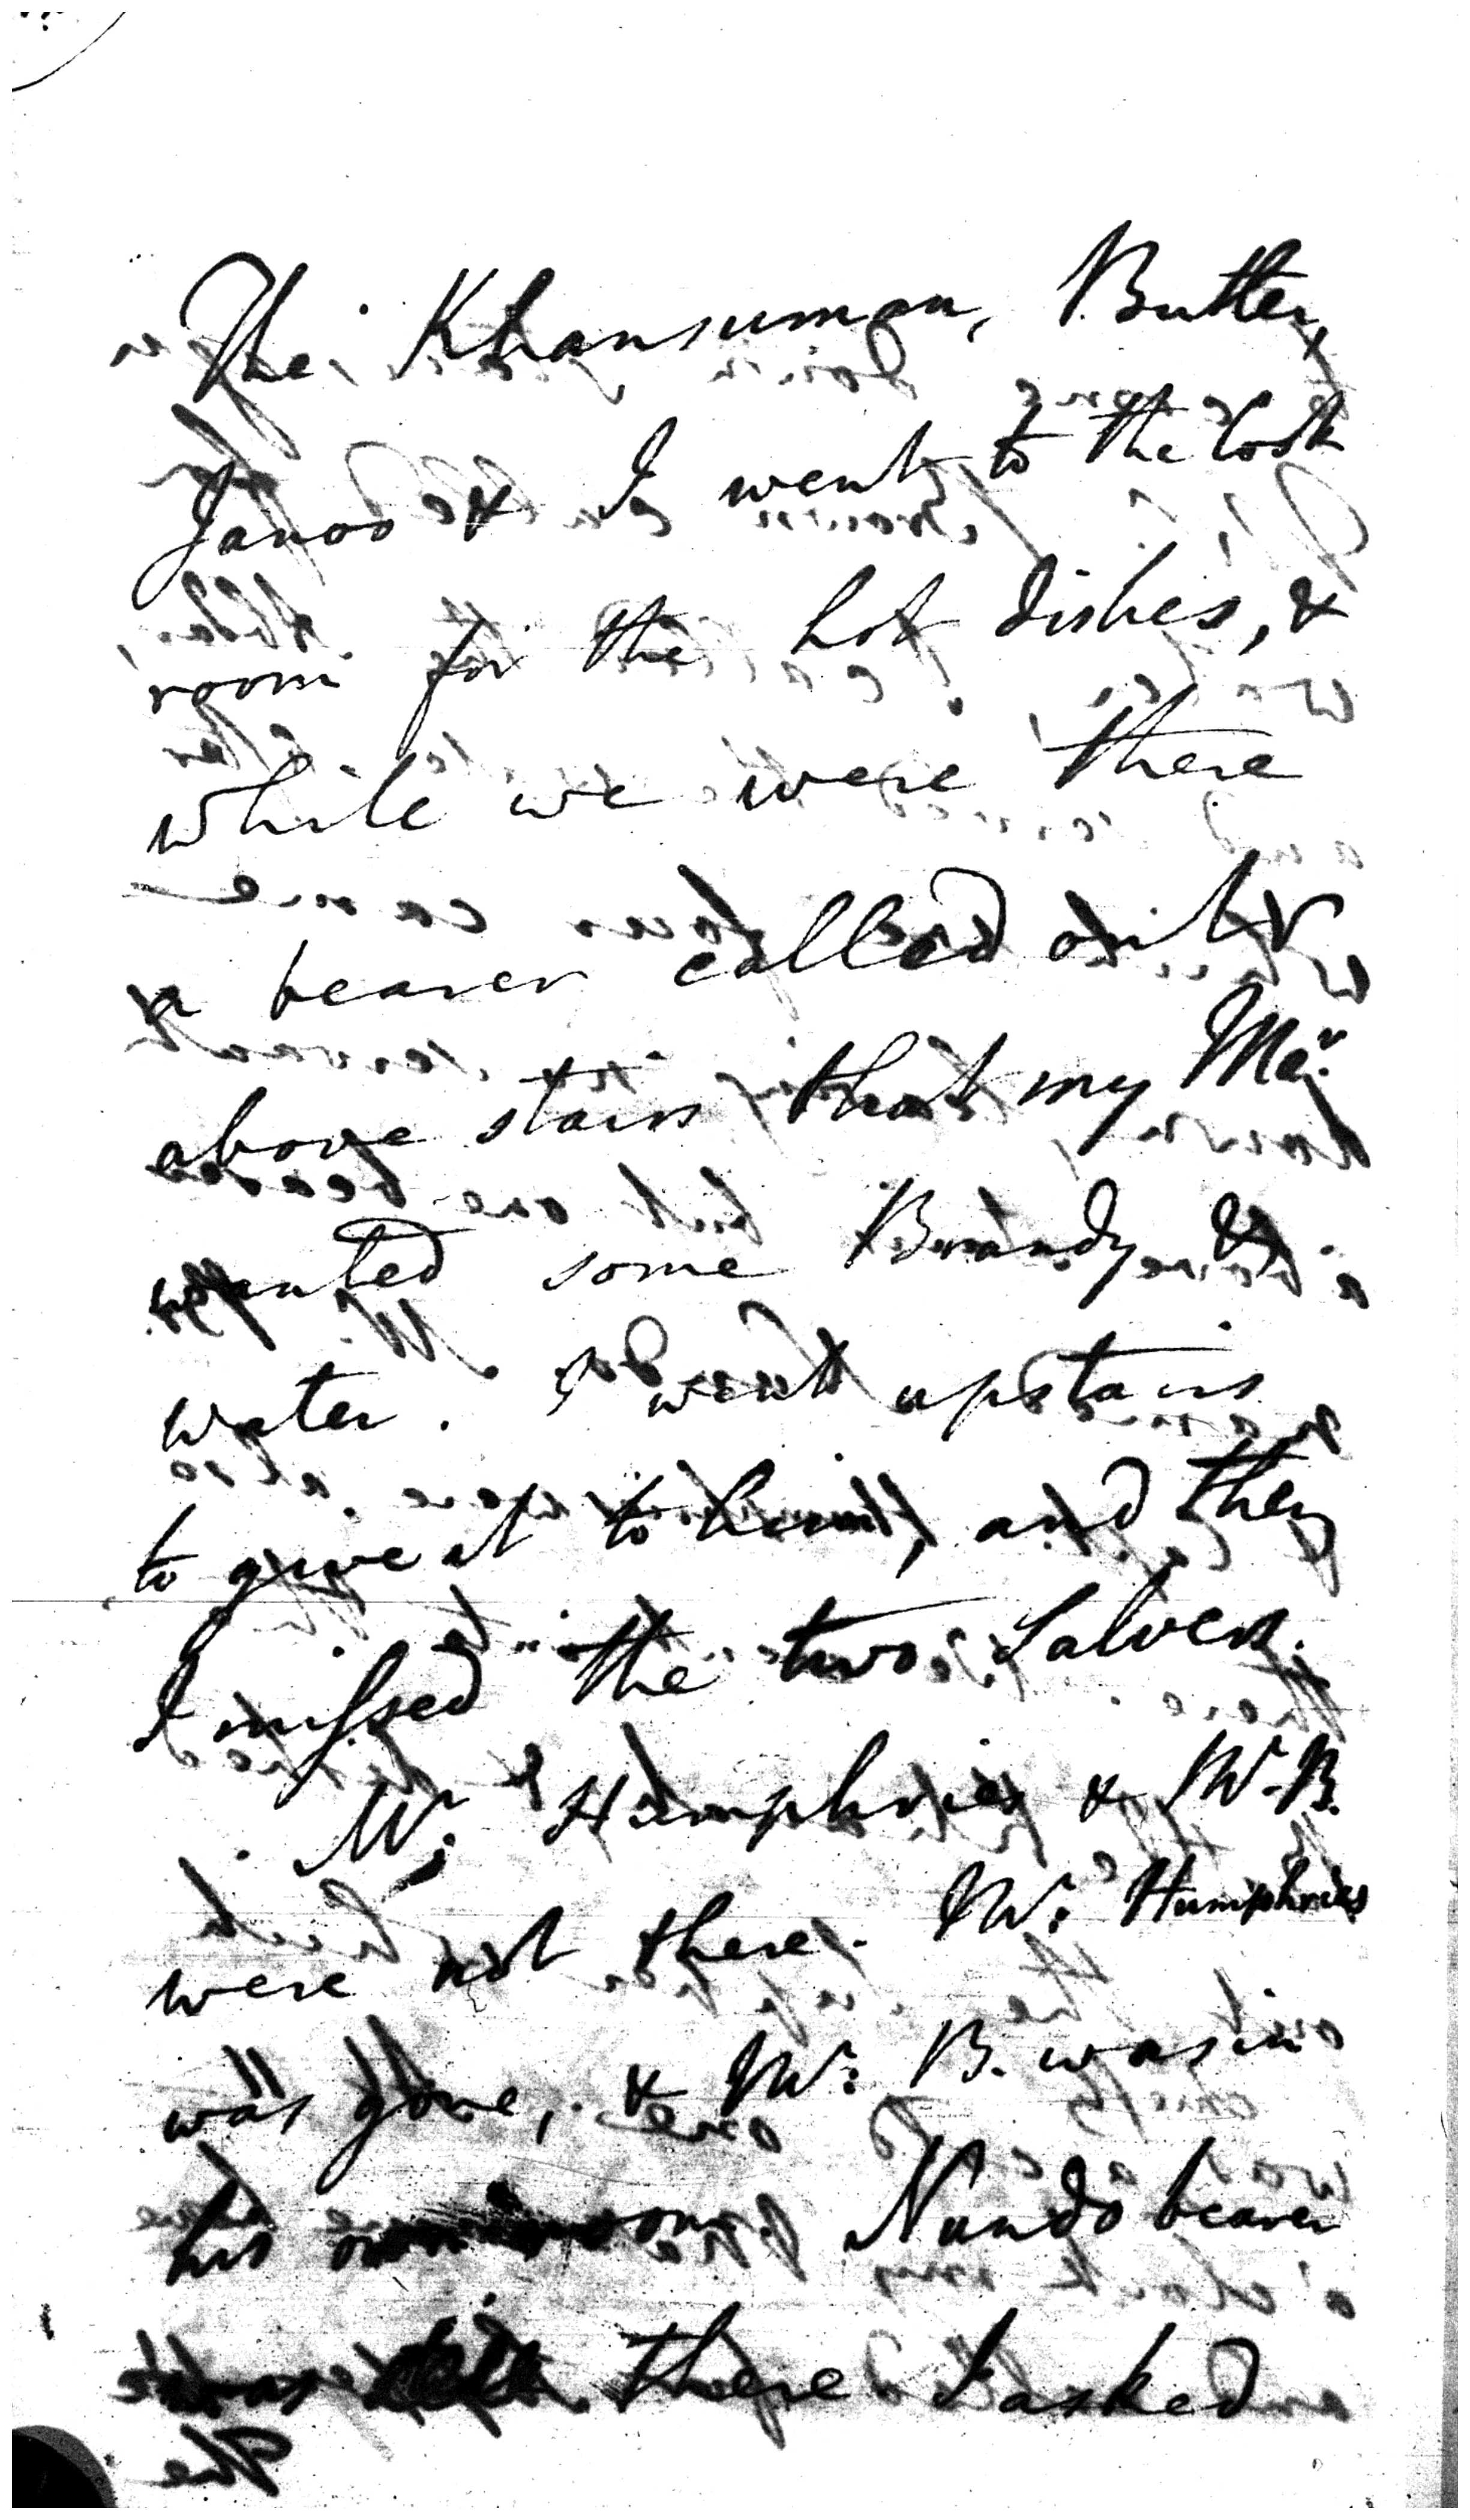 The Khansuman, Butler,
Janoo & I went to the Cook
room for the hot dishes, &
while we were there
a bearer called out
above stairs that my Mas.r
wanted some Brandy &
water. I went upstairs
to give it to him, and then
I missed the two Salvers.
Mr. Humphries & Mr. B.
were not there. Mr. Humphries
was gone, & Mr. B. was in
his own room Nundo bearer
was there I asked
The